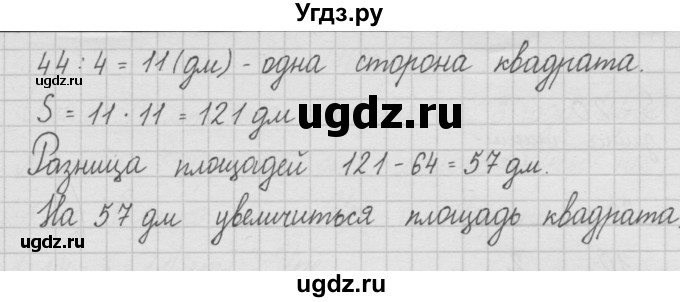 Угдз.ру
44 : 4 = 11 (дм) - одна сторона квадрата.
ugdz.ru
S = 11 · 11 = 121 дм
ugdz.ru
Разница площадей 121 - 64 = 57 дм.
На 57 дм увеличиться площадь квадрата.
ugdz.ru
ugdz.ru